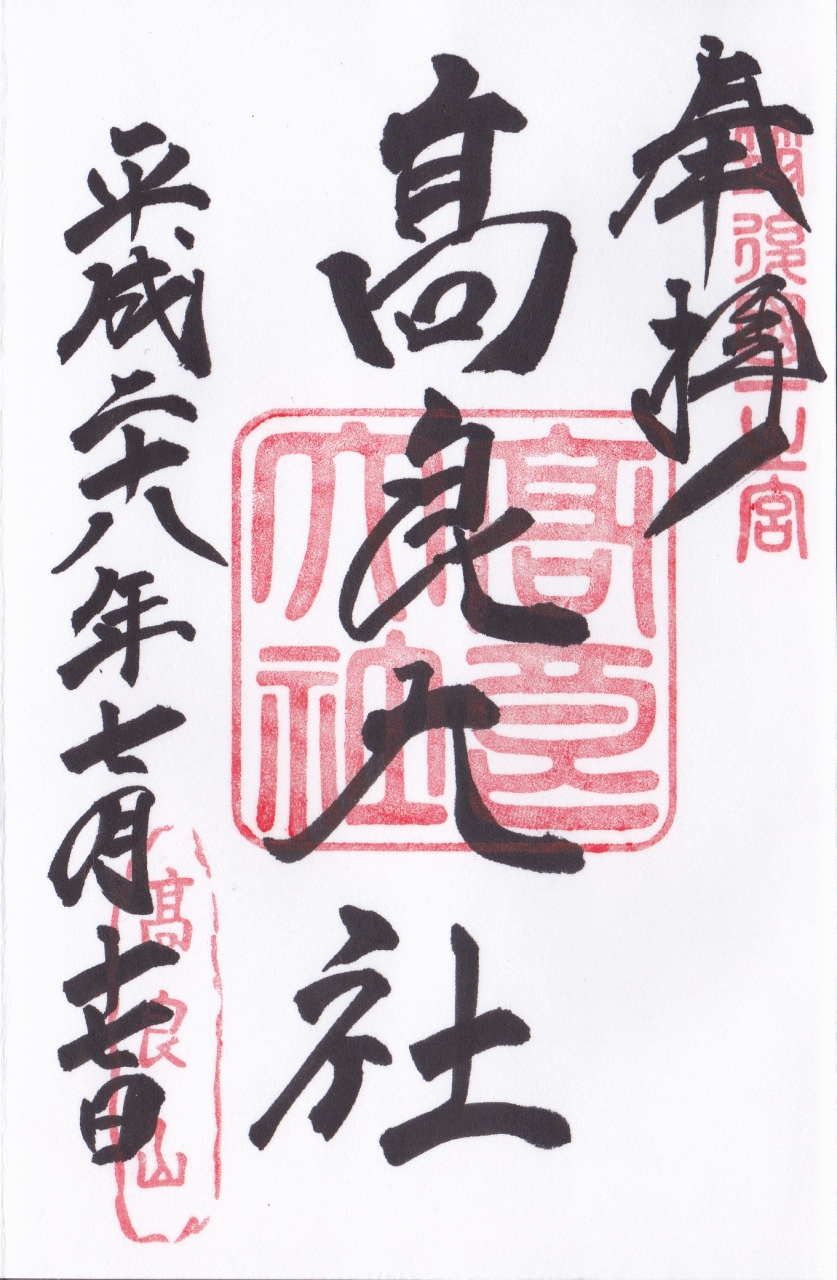 奉拝
筑後國一之宮
髙良大社
高良大社
平成二十八年七月十七日
高良山